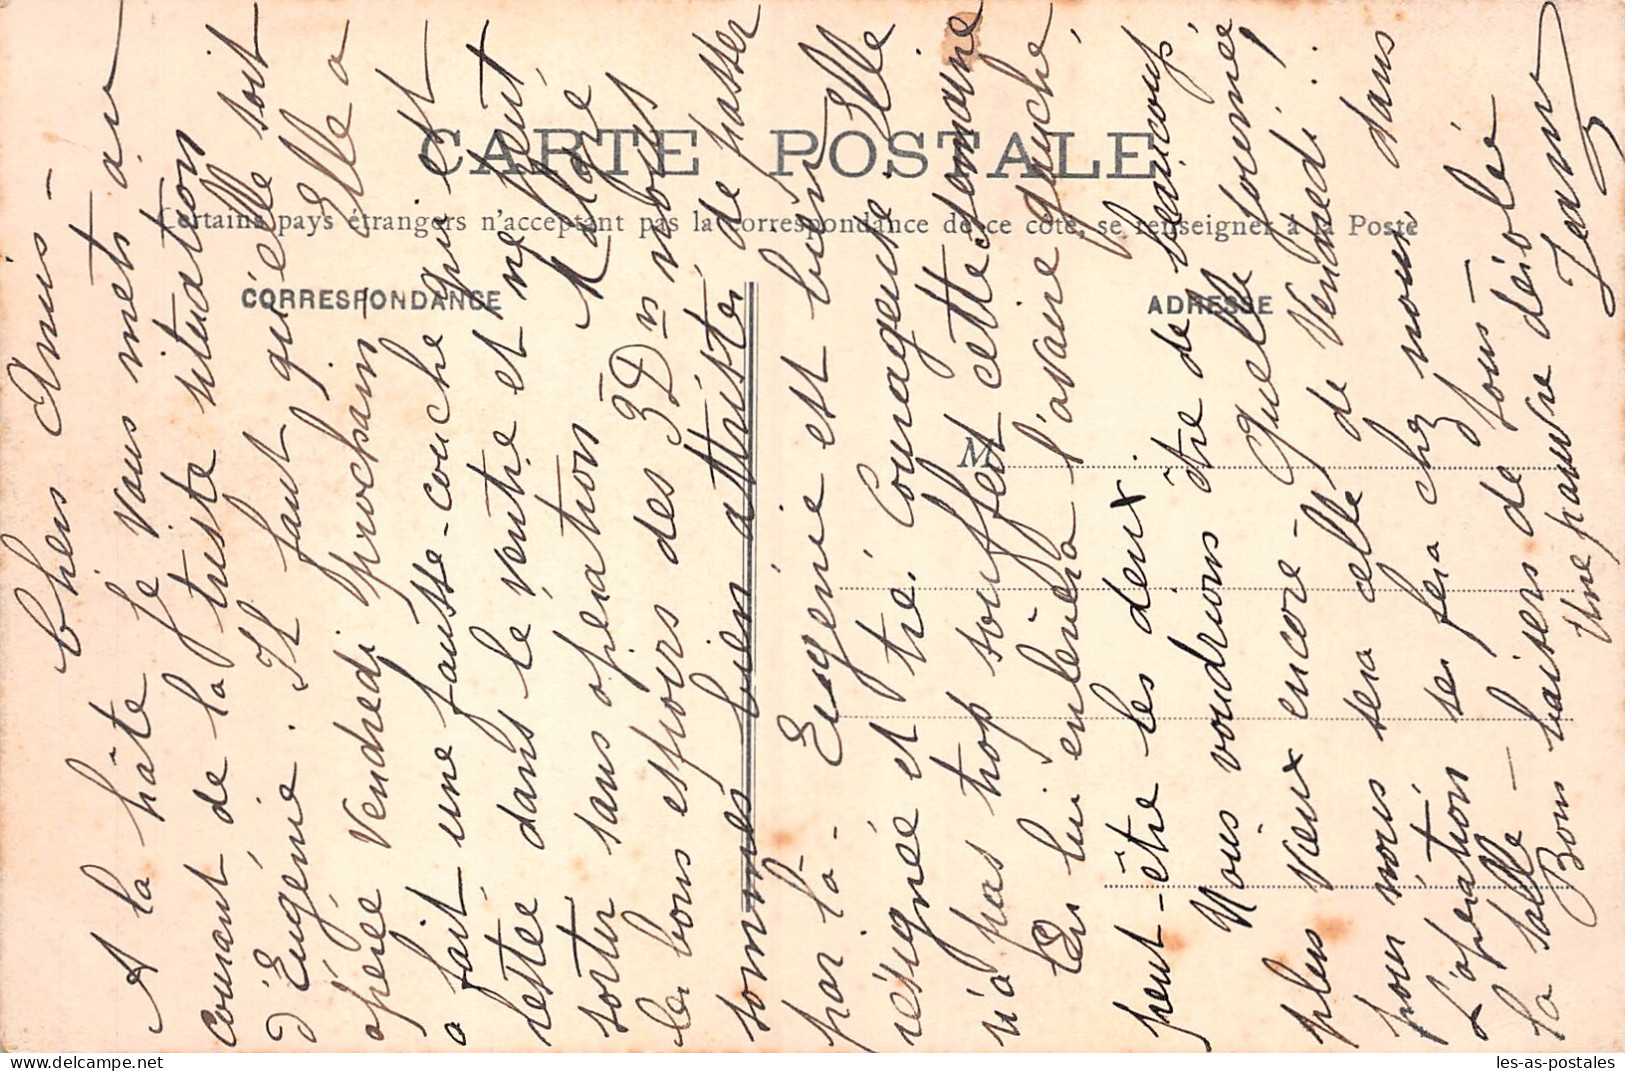 CARTE POSTALE
Certains pays étrangers n'acceptent pas la correspondance de ce côté, se renseigner à la Poste
CORRESPONDANCE
ADRESSE
M
Chers Amis -
A la hâte je vous mets au
courant de la triste situation
d'Eugénie. Il faut qu'elle soit
opérée Vendredi prochain - Elle a
a fait une fausse-couche qui est
restée dans le ventre et ne peut
sortir sans opération - Malgré
les bons espoirs des 3 Drs nous
sommes bien attristés de passer
par là - Eugénie est bien
résignée et très courageuse. Elle
n'a pas trop souffert cette semaine
On lui enlèvera l'ovaire gauche,
peut-être les deux.
Nous voudrions être de beaucoup
plus vieux encore - Quelle journée
pour nous sera celle de Vendredi !
L'opération se fera chez nous dans
la salle - 
Bons baisers de tous -
Une pauvre désolée
Jeanne
les-as-postales